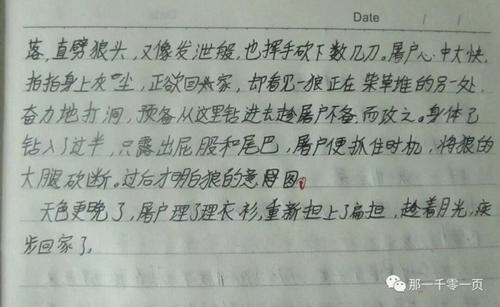 Date
Date
落,直劈狼头,又像发泄般,也挥手砍下数几刀。屠户心中大快,
拍拍身上灰尘,正欲回家,却看见一狼正在柴草堆的另一处,
奋力地打洞,预备从这里钻进去趁屠户不备而攻之。身体已
钻入了过半,只露出屁股和尾巴,屠户便抓住时机,将狼的
大腿砍断。过后才明白狼的意图。
天色更晚了,屠户理了理衣衫,重新担上了扁担,趁着月光,疾
步回家了。
那一千零一页